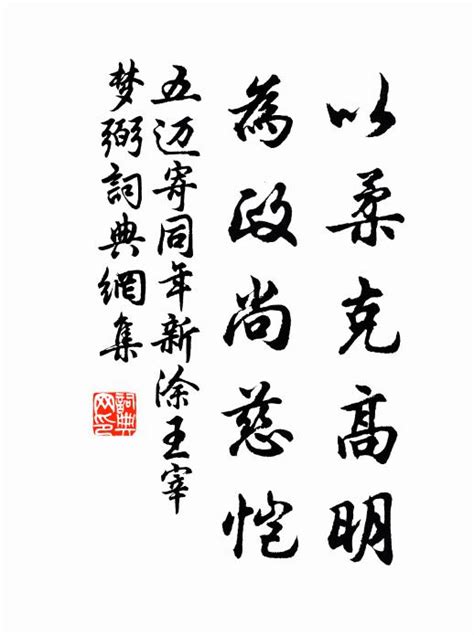 以柔克高明
為政尚慈恺
五迈寄同年新淦王宰
梦弼詞典網集
詞典
网印